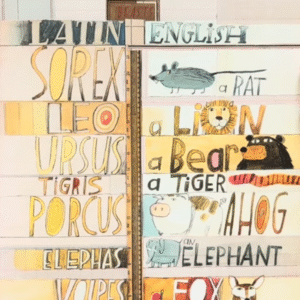 LATIN ENGLISH
SOREX a RAT
LEO a LION
URSUS a Bear
TIGRIS a TiGER
PORCUS A HOG
ELEPHAS an ELEPHANT
VOLPES a FOX